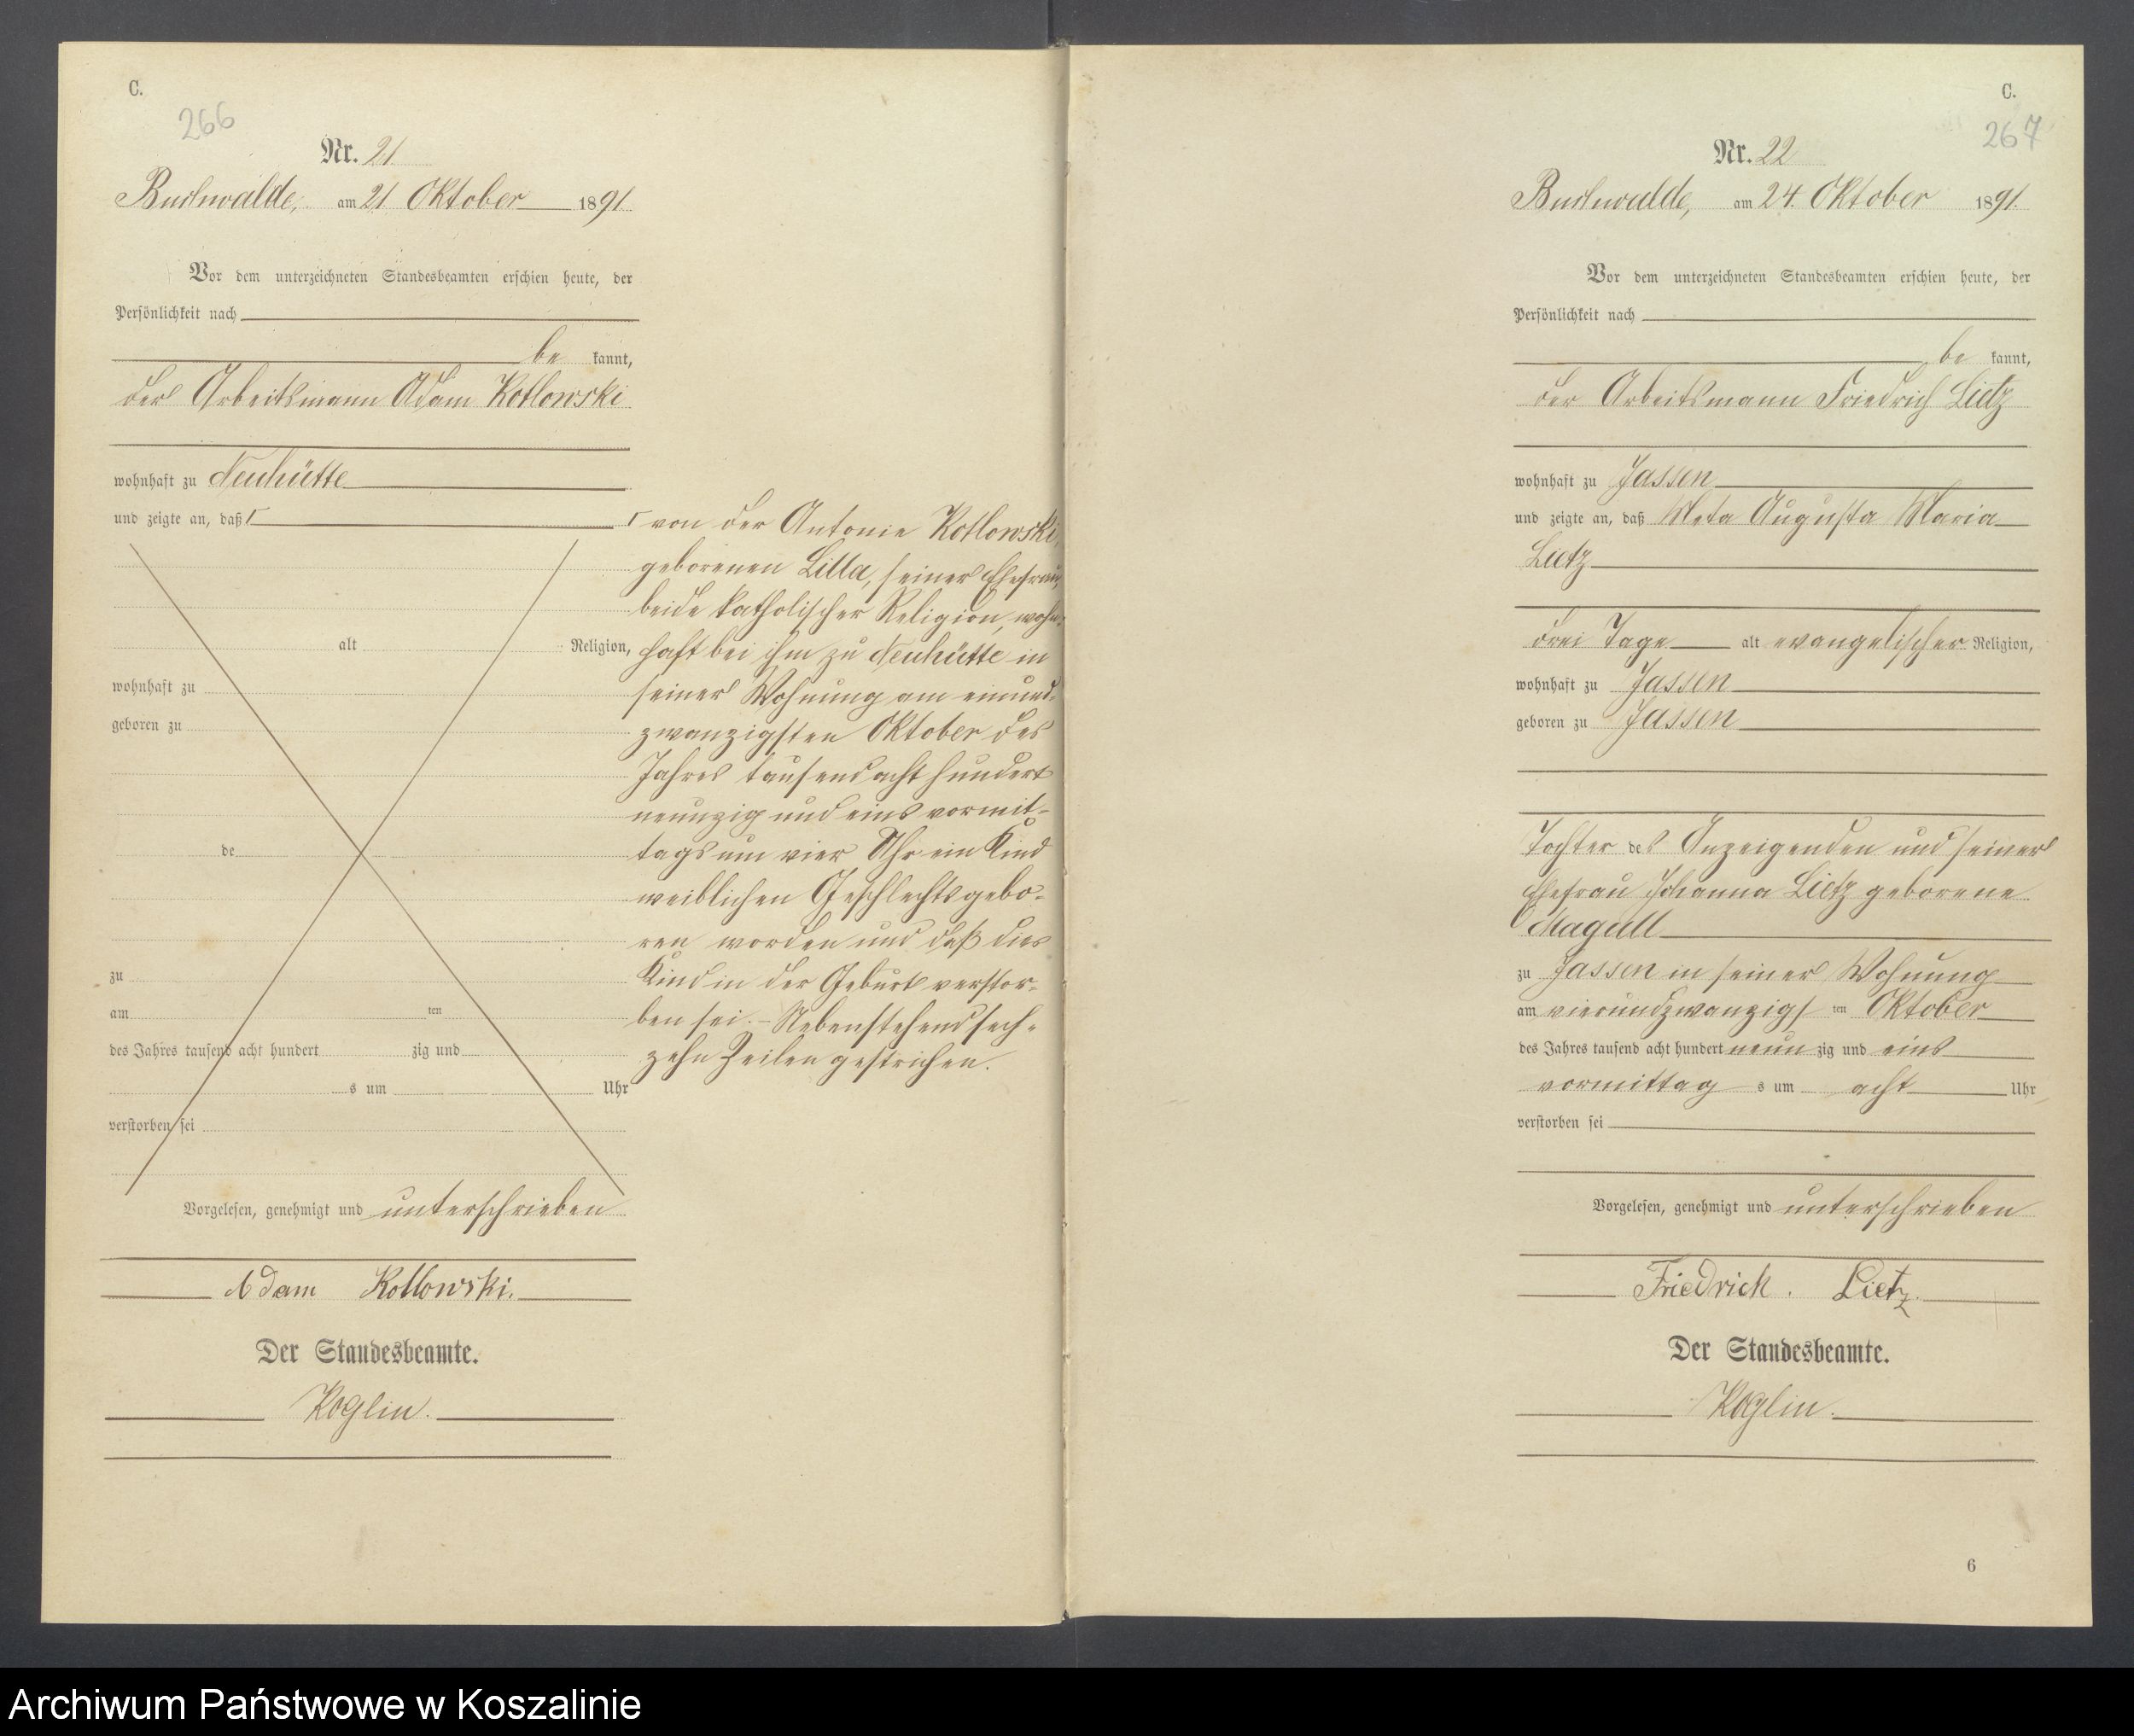 C.
266
Nr. 21
Buchwalde, am 21 Oktober 1891.
Vor dem unterzeichneten Standesbeamten erschien heute, der
Persönlichkeit nach
be kannt,
der Arbeitsmann Adam Kotlowski
wohnhaft zu Neuhütte
und zeigte an, daß Γ
alt Religion,
wohnhaft zu
geboren zu
de
zu
am ten
des Jahres tausend acht hundert zig und
s um Uhr
verstorben sei
Γ von der Antonie Kotlowski,
geborenen Lilla, seiner Ehefrau,
beide katholischer Religion, wohn-
haft bei ihm zu Neuhütte in
seiner Wohnung am einund-
zwanzigsten Oktober des
Jahres tausend acht hundert
neunzig und eins vormit-
tags um vier Uhr ein Kind
weiblichen Geschlechts gebo-
ren worden und daß dies
Kind in der Geburt verstor-
ben sei. - Nebenstehend sech-
zehn Zeilen gestrichen.
Vorgelesen, genehmigt und unterschrieben
Adam Kotlowski.
Der Standesbeamte.
Koglin.
C.
267
Nr. 22
Buchwalde, am 24. Oktober 1891.
Vor dem unterzeichneten Standesbeamten erschien heute, der
Persönlichkeit nach
be kannt,
der Arbeitsmann Friedrich Lietz
wohnhaft zu Jassen
und zeigte an, daß Meta Augusta Maria
Lietz
drei Tage alt evangelischer Religion,
wohnhaft zu Jassen
geboren zu Jassen
Tochter des Anzeigenden und seiner
Ehefrau Johanna Lietz geborene
Magull
zu Jassen in seiner Wohnung
am vierundzwanzigs ten Oktober
des Jahres tausend acht hundert neun zig und eins
vormittag s um acht Uhr
verstorben sei
Vorgelesen, genehmigt und unterschrieben
Friedrich. Lietz.
Der Standesbeamte.
Koglin.
6
Archiwum Państwowe w Koszalinie